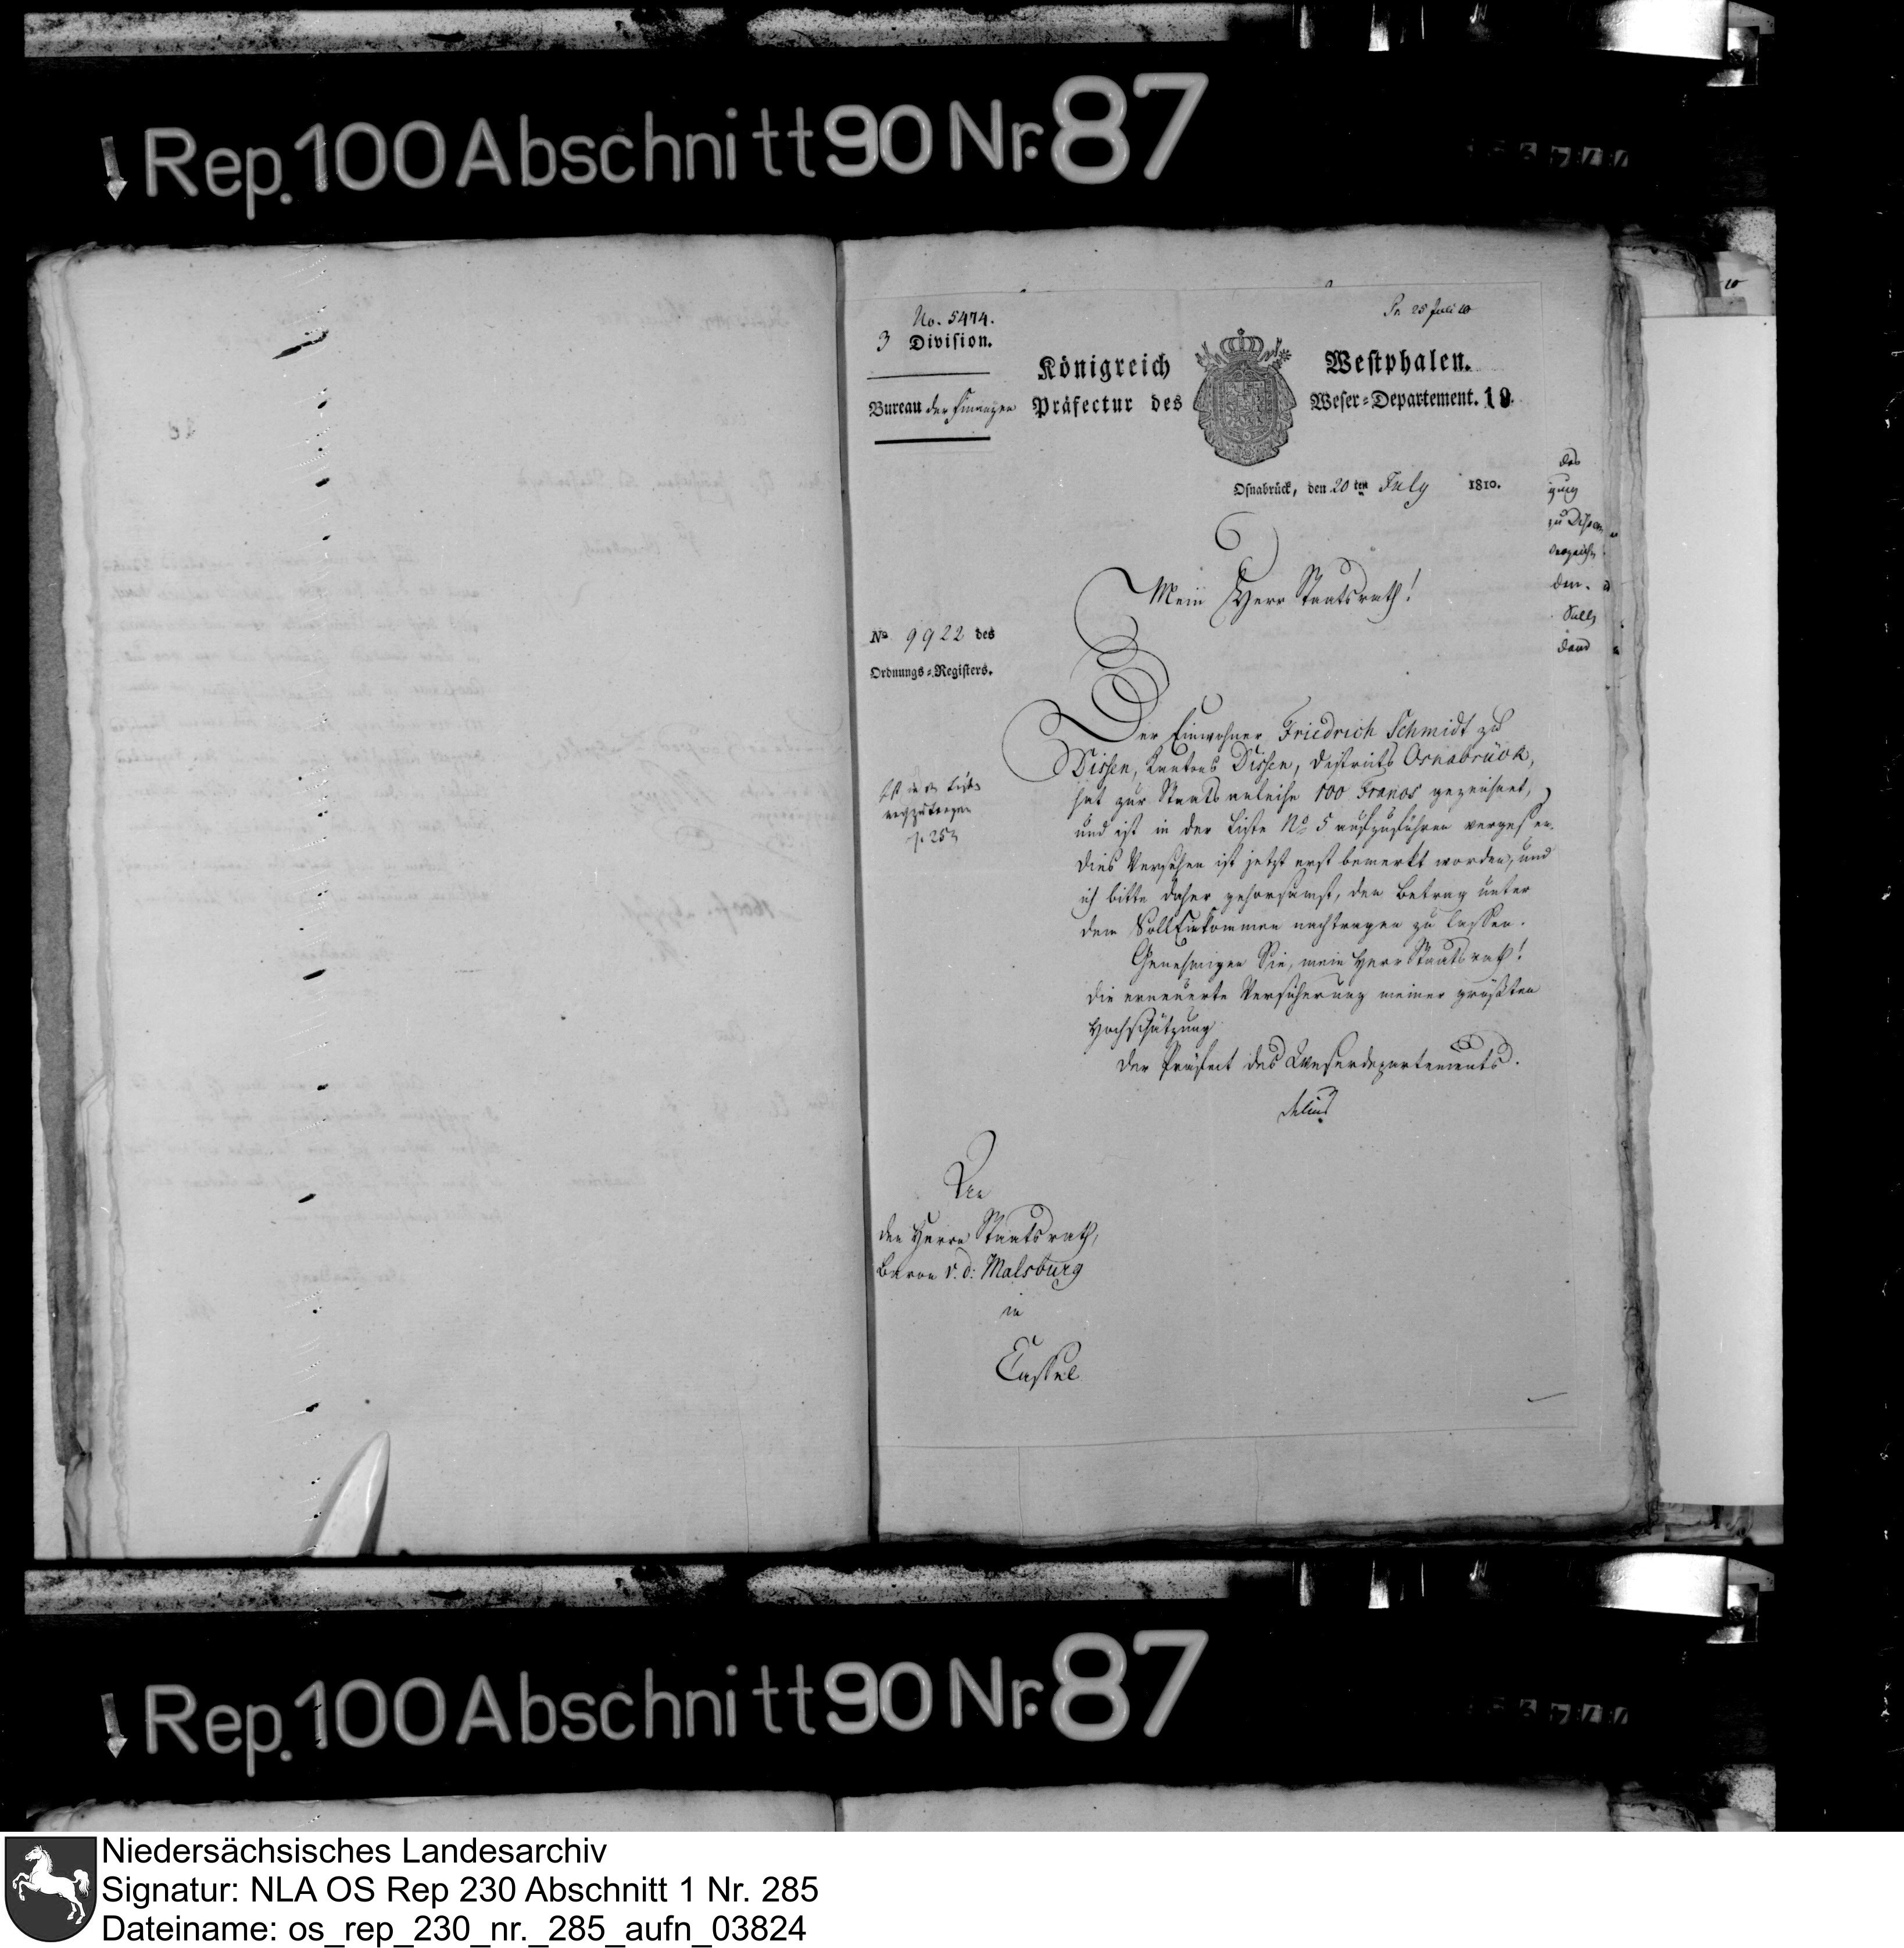 Rep. 100 Abschnitt 90 Nr. 87
No. 5474.
3 Diviſion.
Bureau der Finanzen
Pr. 25 Juli 10
Königreich Weſtphalen.
Präfectur des Weſer-Departement. 19.
Oſnabrück, den 20 ten July 1810.
Mein Herr Staatsrath!
No 9922 des
Ordnungs-Regiſters.
Der Einwohner Friedrich Schmidt zu
Dissen, Kantons Dissen, Districts Osnabrück,
hat zur Staatsanleihe 100 Francs gezeichnet,
und ist in der Liste No 5 aufzuführen vergessen.
Dies Versehen ist jetzt erst bemerkt worden, und
ich bitte daher gehorsamst, den Betrag unter
dem Soll Einkommen nachtragen zu lassen.
Genehmigen Sie, mein Herr Staatsrath!
die erneuerte Versicherung meiner größten
Hochschätzung
Der Präfect des Weserdepartements.
Delius
Ist in der Liste
nachzutragen
An
den Herrn Staatsrath,
Baron v. d. Malsburg
in
Cassel
das
zu
den.
10
Rep. 100 Abschnitt 90 Nr. 87
Niedersächsisches Landesarchiv
Signatur: NLA OS Rep 230 Abschnitt 1 Nr. 285
Dateiname: os_rep_230_nr._285_aufn_03824